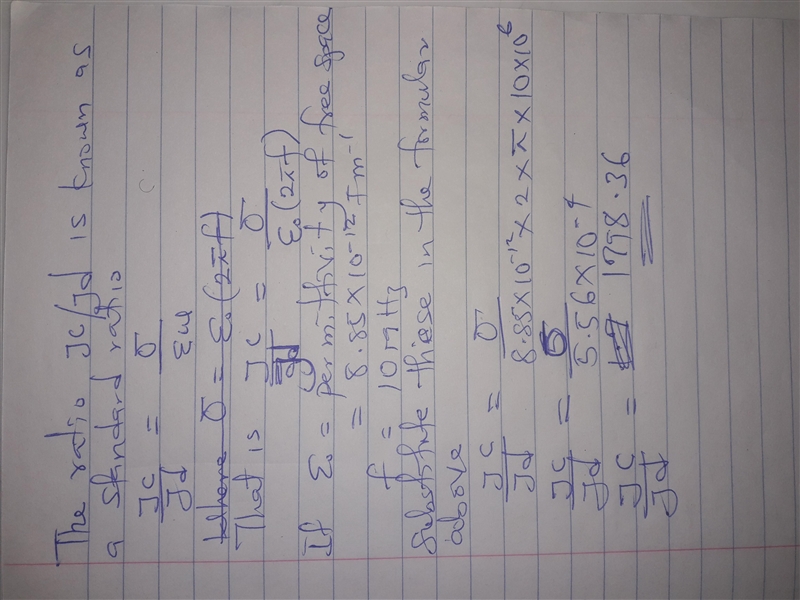 The ratio Jc/Jd is known as
a standard ratio
Jc/Jd = σ/εω
where σ = ε₀(2πf)
That is Jc/Jd = σ/ε₀(2πf)
If ε₀ = permittivity of free space
= 8.85×10⁻¹² Fm⁻¹
f = 10MHz
Substitute thiese in the formular
above
Jc/Jd = σ/8.85×10⁻¹² × 2 × π × 10×10⁶
Jc/Jd = σ/5.56×10⁻⁴
Jc/Jd = 1798.36